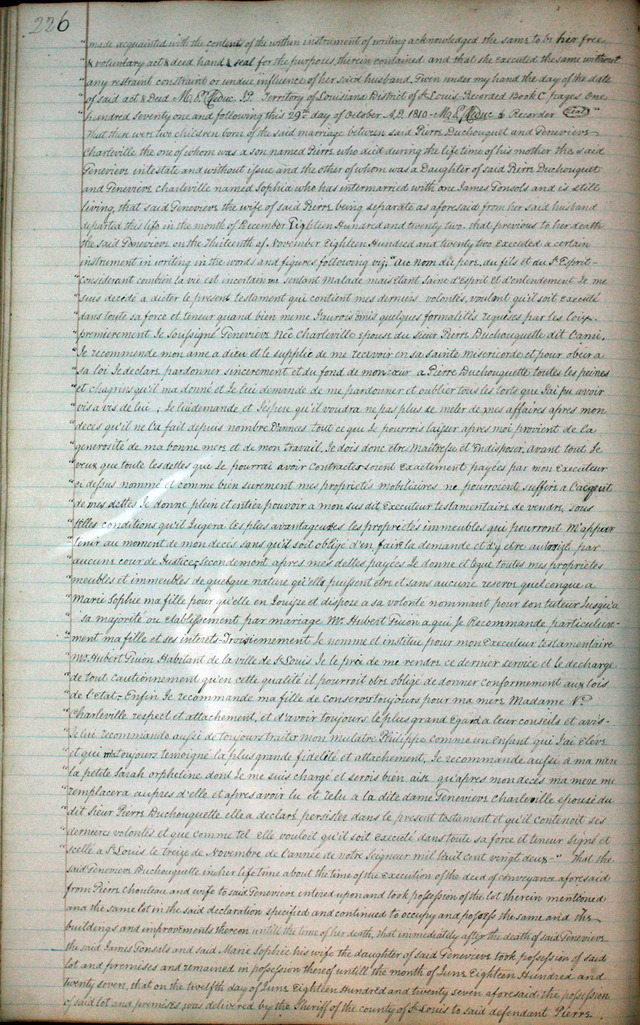 226
"made acquainted with the contents of the within instrument of writing acknowledged the same to be her free
"& voluntary act & deed hand & seal for the purposes therein contained and that she executed the same without
"any restraint constraint or undue influence of her said husband. Given under my hand the day of the date
"of said act & Deed M. P. Leduc J.P. Territory of Louisiana District of St Louis Recorded Book C. pages One
"hundred seventy one and following this 29th day of October A.D. 1810 - M. P. Leduc Recorder
That there were two children born of the said marriage between said Pierre Duchouquet and Genevieve
Charleville the one of whom was a son named Pierre who died during the life time of his mother the said
Genevieve intestate and without issue and the other of whom was a Daughter of said Pierre Duchouquet
and Genevieve Charleville named Sophia who has intermarried with one James Gonsols and is still
living, that said Genevieve the wife of said Pierre being separate as aforesaid from her said husband
departed this life in the month of December Eighteen Hundred and twenty two. that previous to her death
the said Genevieve on the Thirteenth of November Eighteen Hundred and twenty two executed a certain
instrument in writing in the words and figures following viz; "Au nom du pere, du fils et du St Esprit -
"considerant combien la vie est incertain me sentant Malade mais etant Saine d'esprit et d'entendement Je me
"suis decidé a dicter le present testament qui contient mes dernieres volontés, voulant qu'il soit executé
"dans toute sa force et teneur quand bien meme J'aurois omis quelques formalités requises par les loix.
"premierement Je Soussigné Genevieve Née Charleville epouse du sieur Pierre Duchouquette dit Cami,
"Je recommende mon ame a dieu et le supplie de me recevoir en sa sainte misericorde et pour obeir a
"sa loi Je declare pardonner sincerement et du fond de mon cœur a Pierre Duchouquette toutes les peines
"et chagrins qu'il ma donné et Je lui demande de me pardonner et oublier tous les torts que J'ai pu avoir
"vis a vis de lui; Je lui demande et J'espere qu'il voudra ne pas plus se meler de mes affaires apres mon
"deces qu'il ne l'a fait depuis nombre D'annees tout ce que Je pourrois laisser apres moi provient de la
"generosité de ma bonne mere et de mon travail. Je dois donc etre Maitresse et En disposer, avant tout Je
"veux que toute les dettes que Je pourrai avoir Contractés soient exactement payées par mon Executeur
"ci dessus nommé et comme bien surement mes proprietés mobiliaires ne pourroient suffire a l'acquit
"de mes dettes Je donne plein et entier pouvoir a mon sus dit Executeur testamentaire de vendre, sous
"telles conditions qu'il Jugera les plus avantageuses les proprietés immeubles qui pourront M'appar
"tenir au moment de mon decès sans qu'il soit obligé d'en faire la demande et d'y etre autorisé par
"aucune cour de Justice, secondement apres mes dettes payées Je donne et legue toutes mes proprietés
"meubles et immeubles de quelque nature qu'elle puissent etre et sans aucune reserve quelconque a
"Marie Sophie ma fille pour qu'elle en Jouisse et dispose a sa volonté nommant pour son tuteur Jusqu'a
"sa majorité ou etablissement par mariage Mr. Hubert Guion a qui Je Recommande particuliere-
"ment ma fille et ses interets - Troisiemement Je nomme et institue pour mon Executeur testamentaire
"Mr. Hubert Guion Habitant de la ville de St Louis Je le prie de me rendre ce dernier service et le decharge
"de tout cautionnement qu'en cette qualité il pourroit etre obligé de donner conformement aux lois
"de l'etat - Enfin Je recommande ma fille de conserver toujours pour ma mere Madame Ve
"Charleville respect et attachement, et d'avoir toujours le plus grand Egard a leur conseils et avis -
"Je lui recommande aussi de toujours traiter mon mulatre Philippe comme un Enfant que J'ai elevé
"et qui m'a toujours temoigné la plus grande fidelité et attachement, Je recommande aussi a ma mere
"la petite Sarah orpheline dont Je me suis chargé et serois bien aise qu'apres mon decès ma mere me
"remplacera aupres d'elle et apres avoir lu et relu a la dite dame Genevieve Charleville epouse du
"dit Sieur Pierre Duchouquette elle a declaré persister dans le present testament et qu'il contenoit ses
"dernieres volontés et que comme tel elle vouloit qu'il soit executé dans toute sa force et teneur signé et
"scellé a St Louis le treize de Novembre de l'année de notre Seigneur mil huit cent vingt deux -" That the
said Genevieve Duchouquette in her life time about the time of the execution of the deed of conveyance aforesaid
from Pierre Chouteau and wife to said Genevieve entered upon and took possession of the lot therein mentioned
and the same lot in the said declaration specified and continued to occupy and possess the same and the
buildings and improvements thereon untill the time of her death, that immediately after the death of said Genevieve
the said James Gonsals and said Marie Sophie his wife the daughter of said Genevieve took possession of said
lot and premises and remained in possession thereof untill the month of June Eighteen Hundred and
twenty seven, that on the twelfth day of June Eighteen Hundred and twenty seven aforesaid the possession
of said lot and premises was delivered by the Sheriff of the county of St Louis to said defendant Pierre